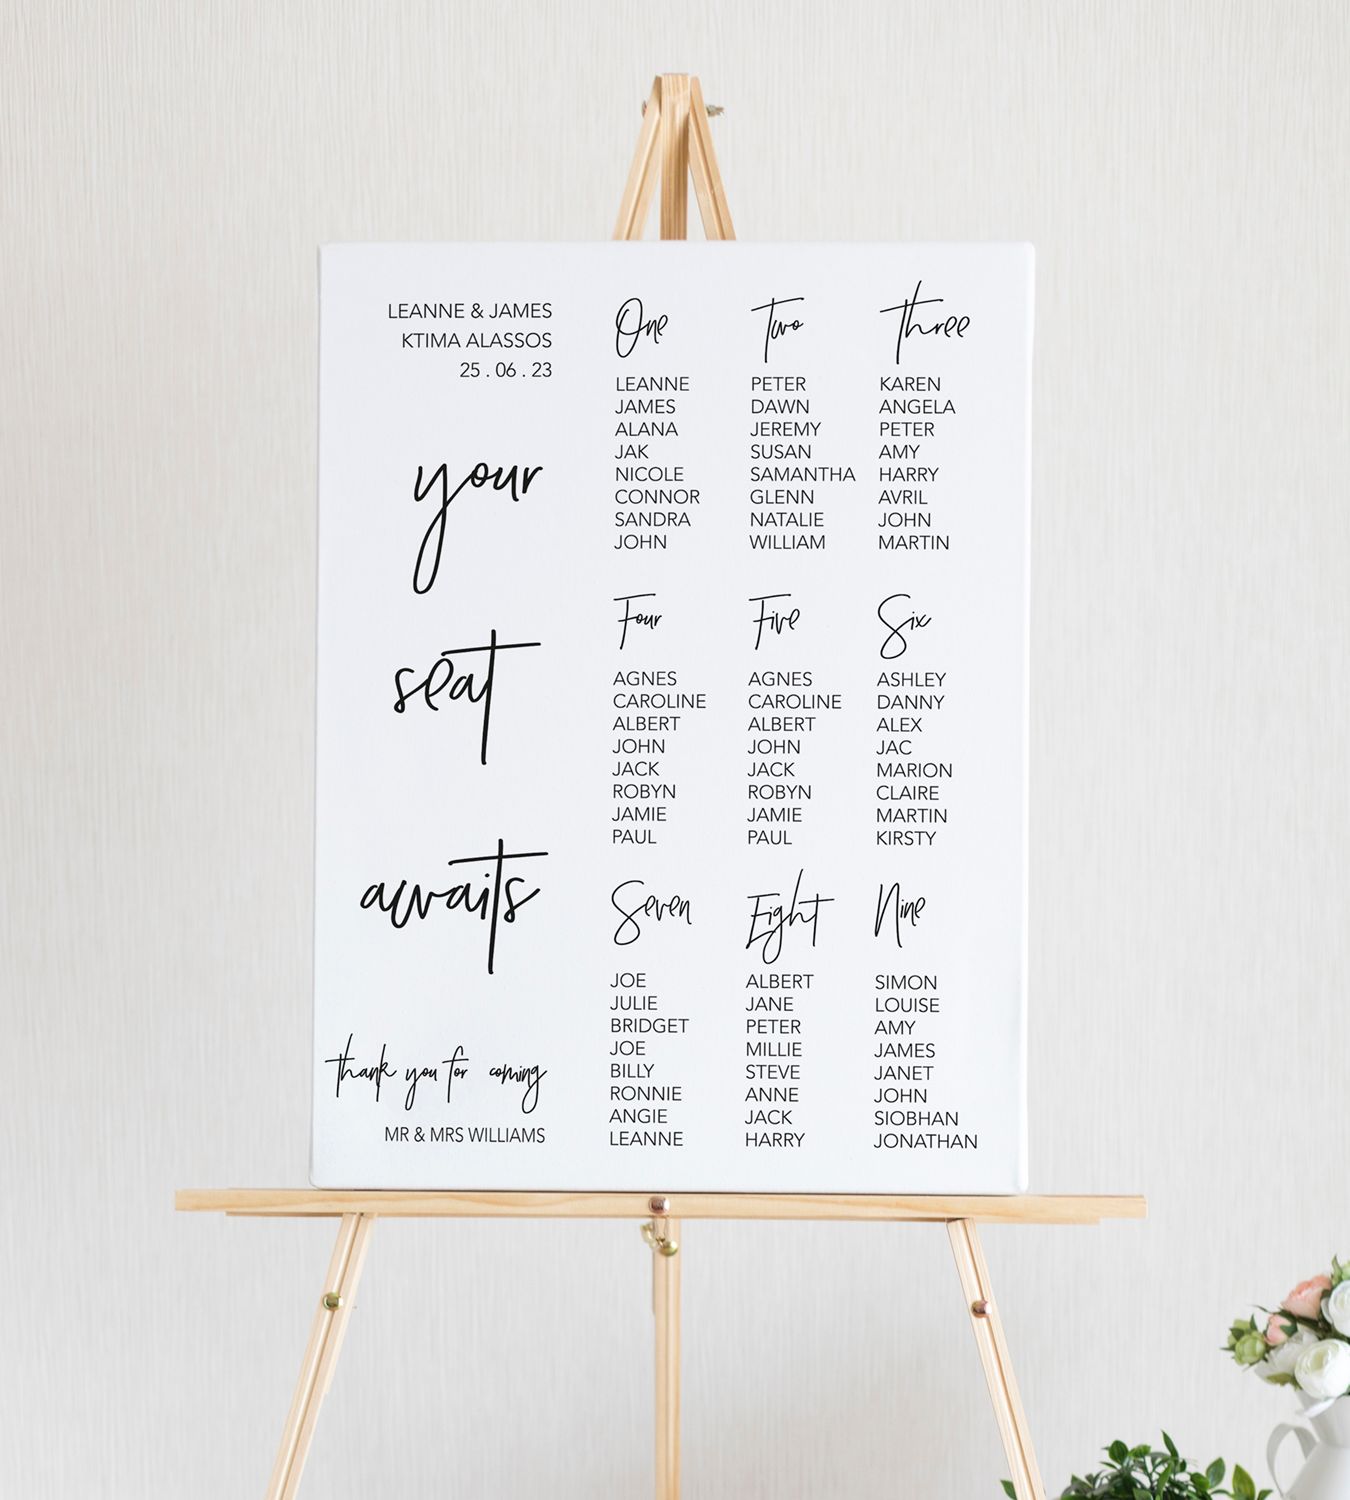 LEANNE & JAMES
KTIMA ALASSOS
25 . 06 . 23
your
seat
awaits
thank you for coming
MR & MRS WILLIAMS
One
LEANNE
JAMES
ALANA
JAK
NICOLE
CONNOR
SANDRA
JOHN
Two
PETER
DAWN
JEREMY
SUSAN
SAMANTHA
GLENN
NATALIE
WILLIAM
Three
KAREN
ANGELA
PETER
AMY
HARRY
AVRIL
JOHN
MARTIN
Four
AGNES
CAROLINE
ALBERT
JOHN
JACK
ROBYN
JAMIE
PAUL
Five
AGNES
CAROLINE
ALBERT
JOHN
JACK
ROBYN
JAMIE
PAUL
Six
ASHLEY
DANNY
ALEX
JAC
MARION
CLAIRE
MARTIN
KIRSTY
Seven
JOE
JULIE
BRIDGET
JOE
BILLY
RONNIE
ANGIE
LEANNE
Eight
ALBERT
JANE
PETER
MILLIE
STEVE
ANNE
JACK
HARRY
Nine
SIMON
LOUISE
AMY
JAMES
JANET
JOHN
SIOBHAN
JONATHAN